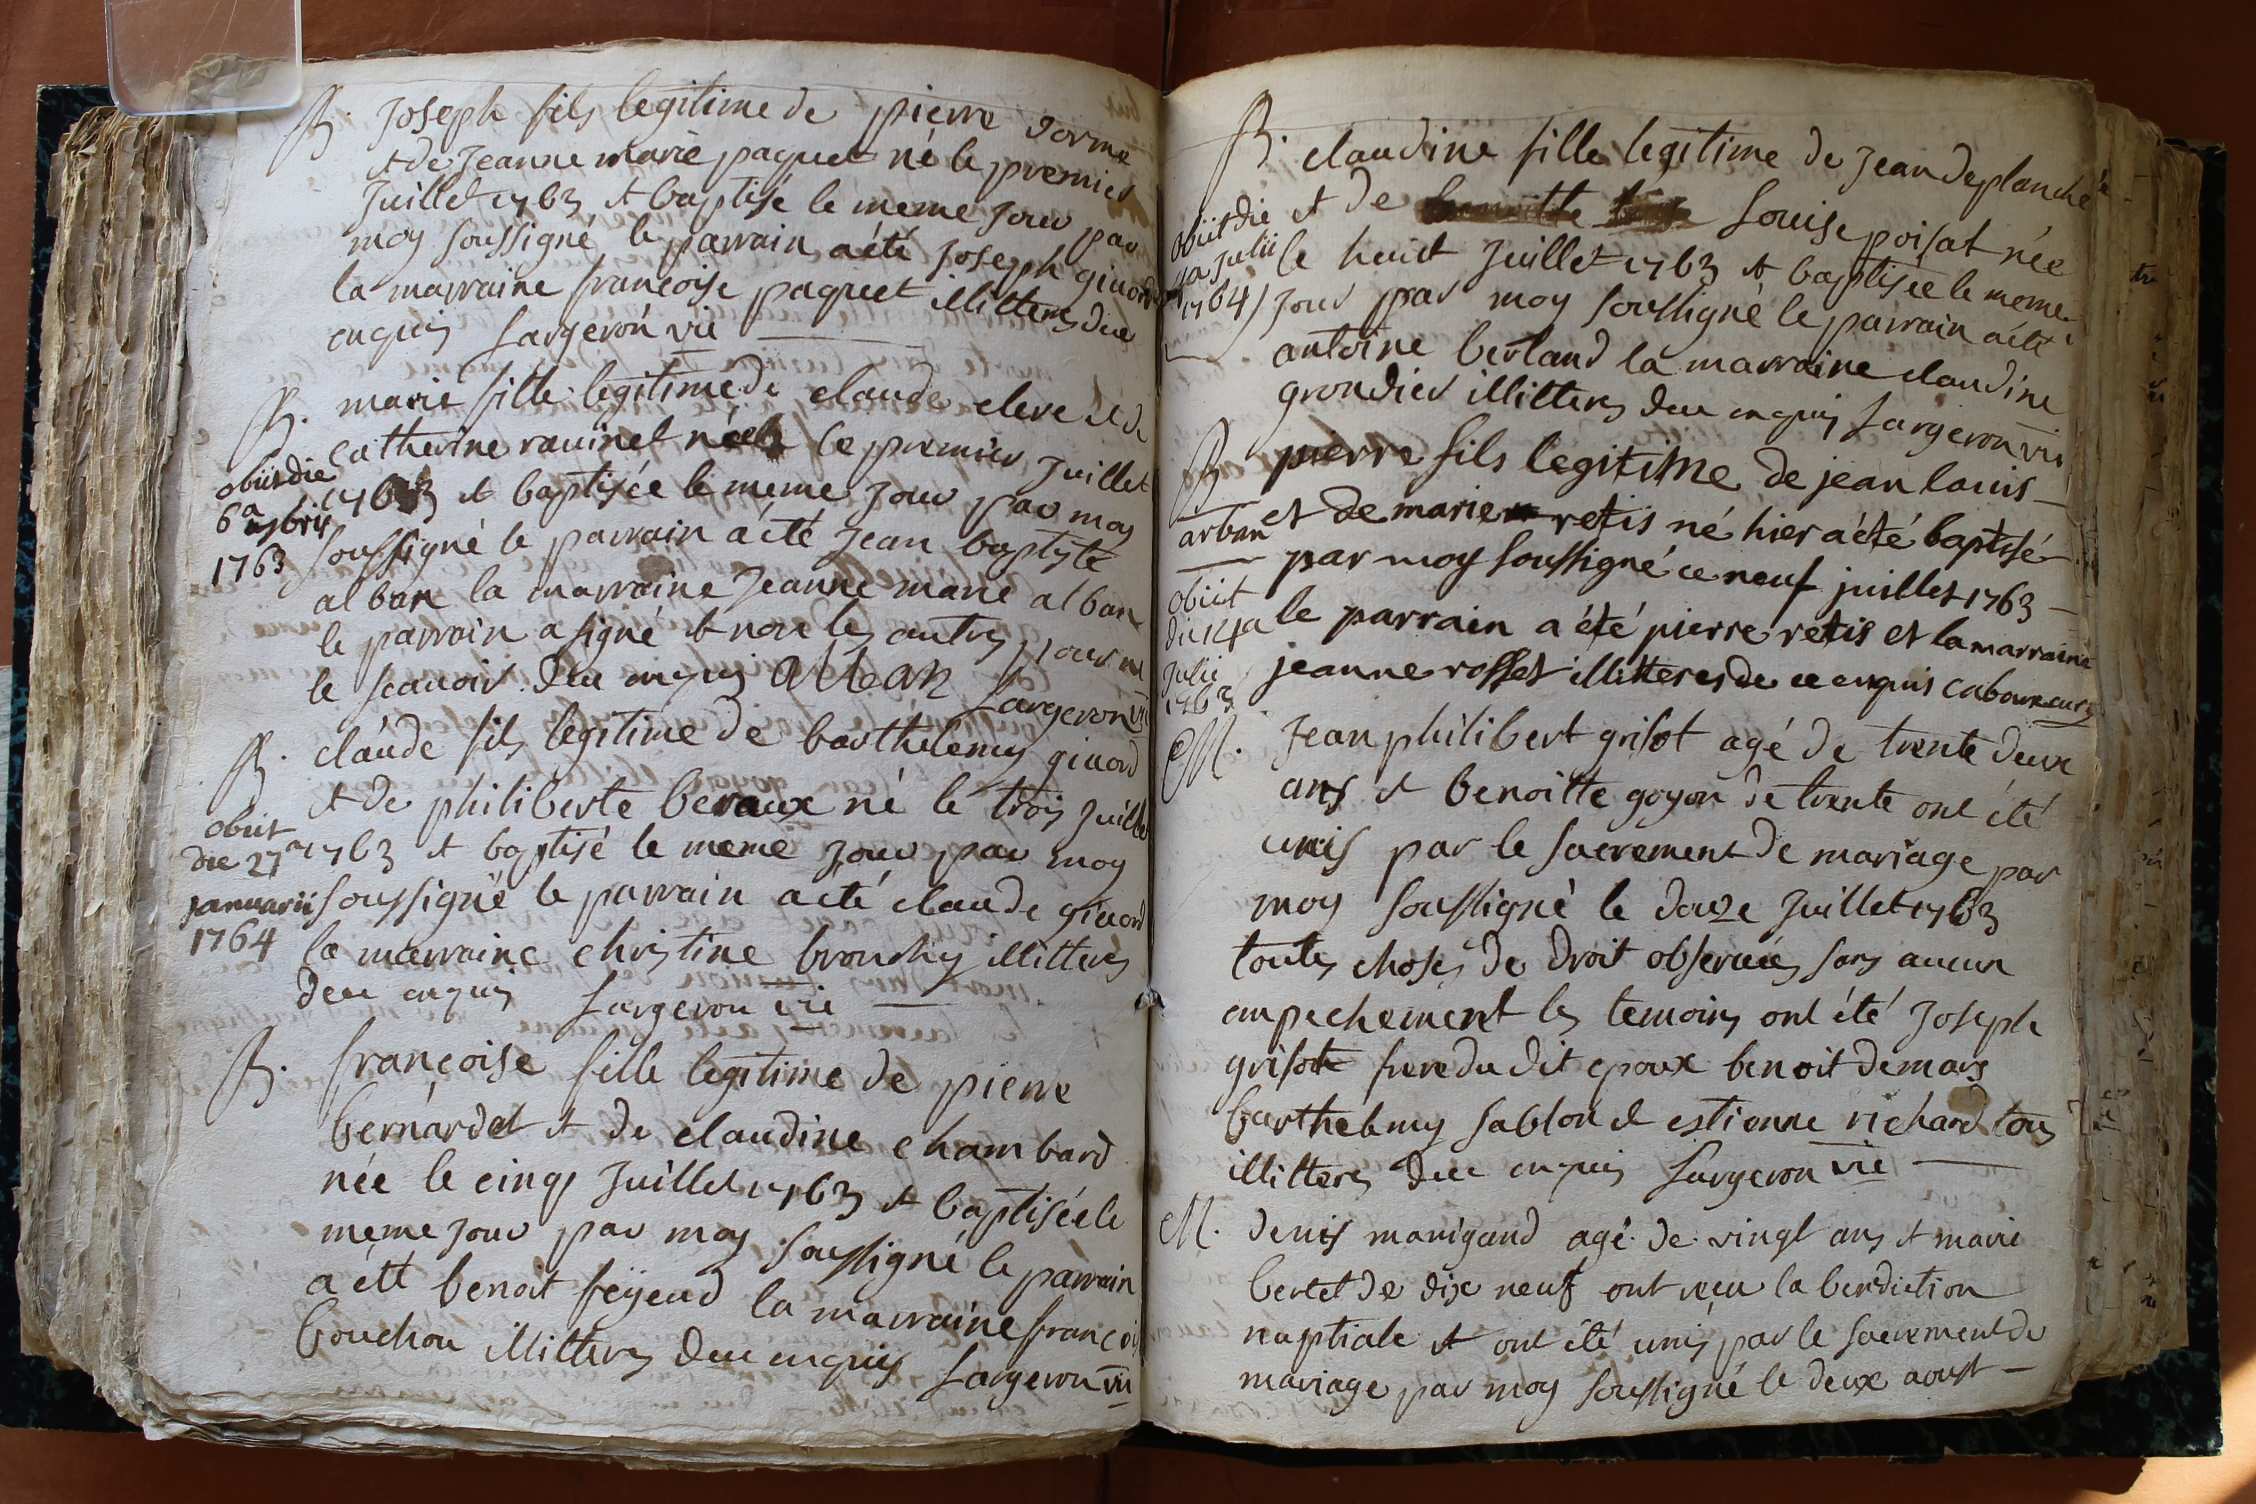 B. Joseph fils legitime de pierre dorme
et de Jeanne marie paquet né le premier
Juillet 1763 et baptisé le meme Jour par
moy soussigné le parrain a été Joseph giuord
la marraine françoise paquet illitteres dce
enquis Sargeron vic
B. marie fille legitime de claude clere et de
catherine rauinet née le premier Juillet
1763 et baptisée le meme Jour par moy
soussigné le parrain a été Jean baptiste
alban la marraine Jeanne marie alban
le parrain a signé et non les autres pour ne
le scauoir dce enquis Alban Sargeron vic
obiit die
6a 9bris
1763
B. claude fils legitime de barthelemy giuord
et de philiberte beraux né le trois Juillet
1763 et baptisé le meme Jour par moy
soussigné le parrain a été claude giuord
la marraine christine brouchy illitteres
dce enquis Sargeron vic
obiit
die 27a
januarii
1764
B. françoise fille legitime de pierre
bernardet et de claudine chambard
née le cinq Juillet 1763 et baptisée le
meme Jour par moy soussigné le parrain
a été benoit feyeud la marraine françoise
bouchou illitteres dce enquis Sargeron vic
B. claudine fille legitime de Jean deplanche
et de Louise poisat née
le huict Juillet 1763 et baptisée le meme
Jour par moy soussigné le parrain a été
antoine berland la marraine claudine
grondier illitteres dce enquis Sargeron vic
obiit die
Julii
1764
B pierre fils legitime de jean louis
arban et de marie retis né hier a été baptisé
par moy soussigné ce neuf juillet 1763
le parrain a été pierre retis et la marraine
jeanne rosset illitteres de ce enquis caboux curé
obiit
die 14a
Julii
1763
M. Jean philibert grisot agé de trente deux
ans et benoitte goyon de trente ont été
unis par le sacrement de mariage par
moy soussigné le douze Juillet 1763
toutes choses de droit obseruées sans aucun
empechement les temoins ont été Joseph
grisot frere du dit epoux benoit demars
barthelemy sablon et estienne richard tous
illitteres dce enquis Sargeron vic
M. denis manigand agé de vingt ans et marie
bertet de dix neuf ont reçu la benediction
nuptiale et ont été unis par le sacrement de
mariage par moy soussigné le deux aoust